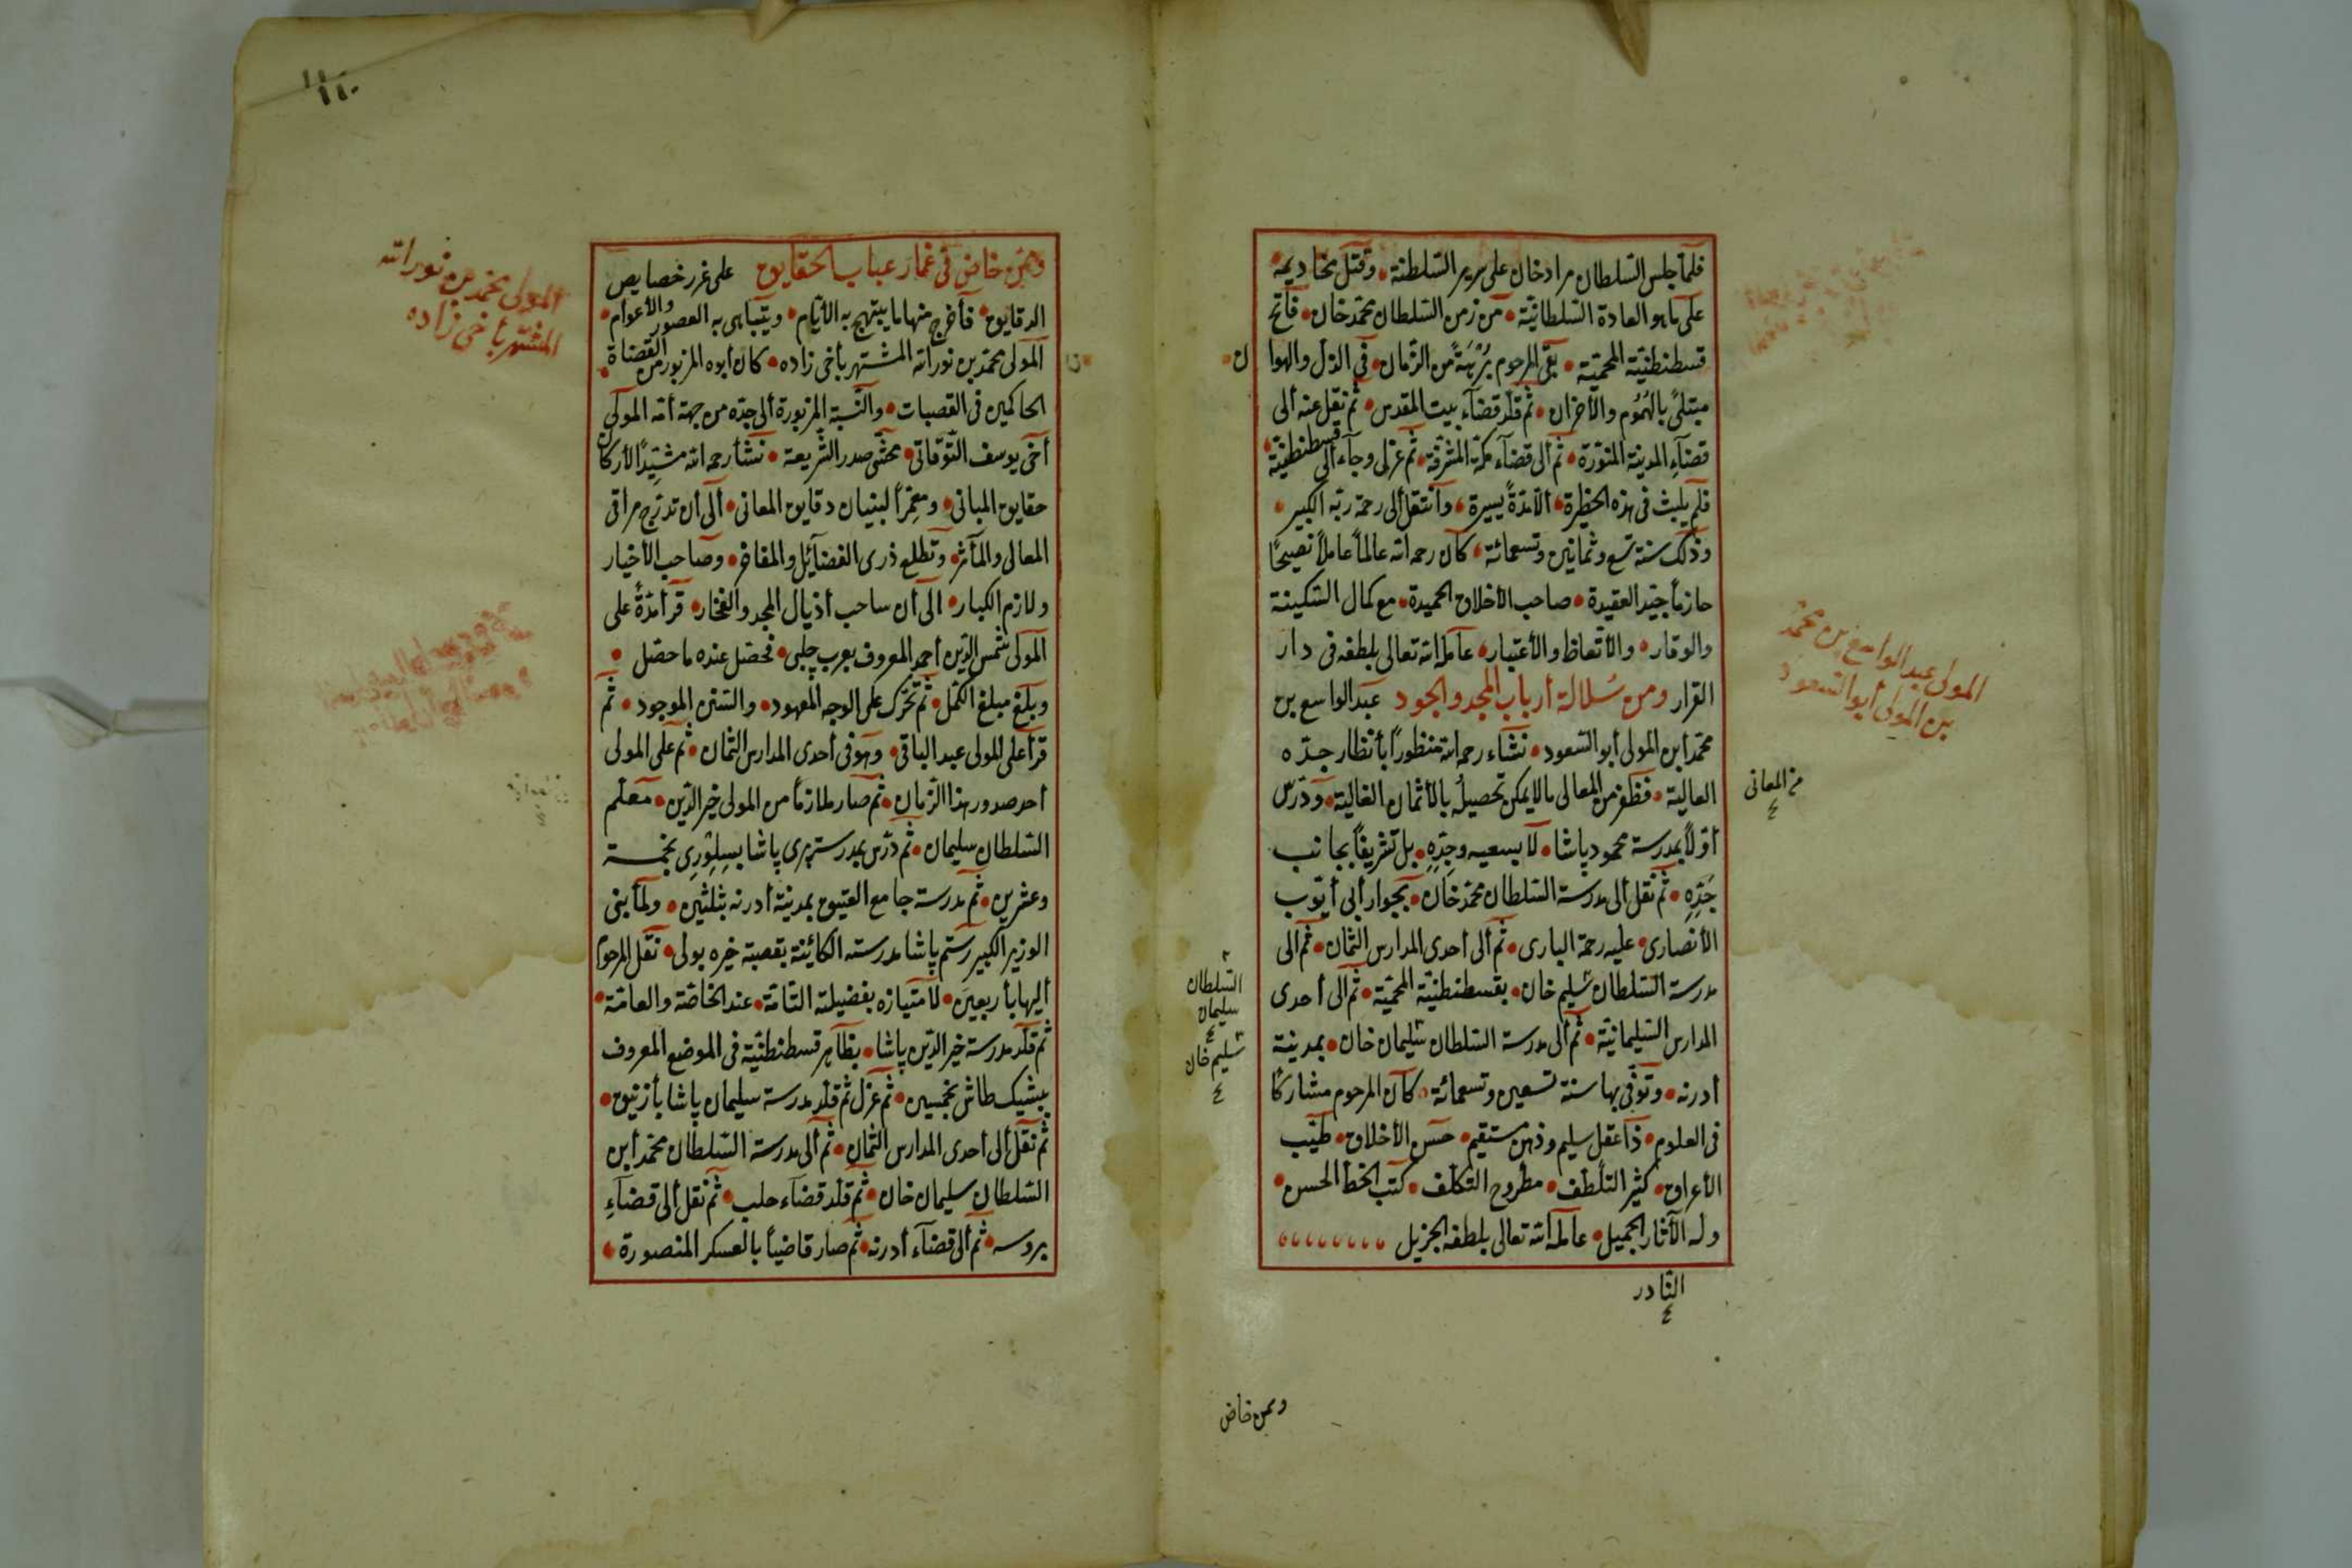 فلما جلس السلطان مراد خان على سرير السلطنة وقتل مخاديمه
على ما هو العادة السلطانية من زمن السلطان محمد خان فاتح
قسطنطنية المحمية بقى المرحوم برهة من الزمان فى الذل والهوا ن
مبتلى بالهموم والأحزان ثم قلد قضاء بيت المقدس ثم نقل عنه ألى
قضاء المدينة المنورة ثم ألى قضاء مكة المشرفة ثم عزل وجاء ألى قسطنطنية
فلم يلبث فى هذه الحظيرة ألا مدة يسيرة وأنتقل ألى رحمة ربه الكبير
وذلك سنة تسع وثمانين وتسعمائة كان رحمه الله عالما عاملا نصيحا
حازما جيد العقيدة صاحب الأخلاق الحميدة مع كمال السكينة
والوقار والأتعاظ والأعتبار عامله الله تعالى بلطفه فى دار
القرار ومن سلالة أرباب المجد والجود عبد الواسع بن
محمد أبن المولى أبو السعود نشاء رحمه الله منظورا بأنظار جده
العالية فظفر من المعالى مالا يمكن تحصيله بالأثمان الغالية ودرس
أولا بمدرسة محمود پاشا لا بسعيه وجده بل تشريفا بجانب
جده ثم نقل ألى مدرسة السلطان محمد خان بجوار أبى أيوب
الأنصارى عليه رحمة البارى ثم ألى أحدى المدارس الثمان ثم ألى
مدرسة السلطان سليم خان بقسطنطنية المحمية ثم ألى أحدى
المدارس السليمانية ثم ألى مدرسة السلطان سليمان خان بمدينة
أدرنه وتوفى بها سنة تسعين وتسعمائة كان المرحوم مشاركا
فى العلوم ذا عقل سليم وذهن مستقيم حسن الأخلاق طيب
الأعراق كثير التلطف مطروح التكلف كتب الخط الحسن
وله الأثار الجميل عامله الله تعالى بلطفه الجزيل
النادر
وممن خاض
المولى عبد الواسع بن محمد
بن المولى أبو السعود
من المعانى
السلطان
سليمان
سليم خان
١١٠
وممن خاض فى غمار عباب الحقايق على غرر خصايص
الدقايق فأخرج منها ما يبتهج به الأيام ويتباهى به العصور والأعوام
المولى محمد بن نور الله المشتهر بأخى زاده كان أبوه المزبور من القضاة
الحاكمين فى القصبات والنسبة المزبورة ألى جده من جهة أمه المولى
أخى يوسف التوقاتى محشى صدر الشريعة نشأ رحمه الله مشيدا لأركان
حقايق المبانى ومعمرا لبنيان دقايق المعانى ألى أن تدرج مراقى
المعالى والمآثر وتطلع ذرى الفضآئل والمفاخر وصاحب الأخيار
ولازم الكبار ألى أن ساحب أذيال المجد والفخار قرأ مدة على
المولى شمس الدين أحمد المعروف بعرب چلبى فحصل عنده ما حصل
وبلغ مبلغ الكمل ثم تحرك على الوجه المعهود والسنن الموجود ثم
قرأ على المولى عبد الباقى وهو فى أحدى المدارس الثمان ثم على المولى
أحد صدور هذا الزمان ثم صار ملازما من المولى خير الدين معلم
السلطان سليمان ثم درس بمدرسة پيرى پاشا بسلورى بخمسة
وعشرين ثم مدرسة جامع العتيق بمدينة أدرنه بثلثين ولما بنى
الوزير الكبير رستم پاشا مدرسته الكائنة بقصبة خيره بولى نقل المرحوم
أليها بأربعين لأمتيازه بفضيلته التامة عند الخاصة والعامة
ثم قلد مدرسة خير الدين پاشا بظاهر قسطنطنية فى الموضع المعروف
ببشيك طاش بخمسين ثم عزل ثم قلد مدرسة سليمان پاشا بأزنيق
ثم نقل ألى أحدى المدارس الثمان ثم ألى مدرسة السلطان محمد أبن
السلطان سليمان خان ثم قلد قضاء حلب ثم نقل ألى قضاء
بروسه ثم ألى قضاء أدرنه ثم صار قاضيا بالعسكر المنصورة
المولى محمد بن نور الله
المشتهر بأخى زاده